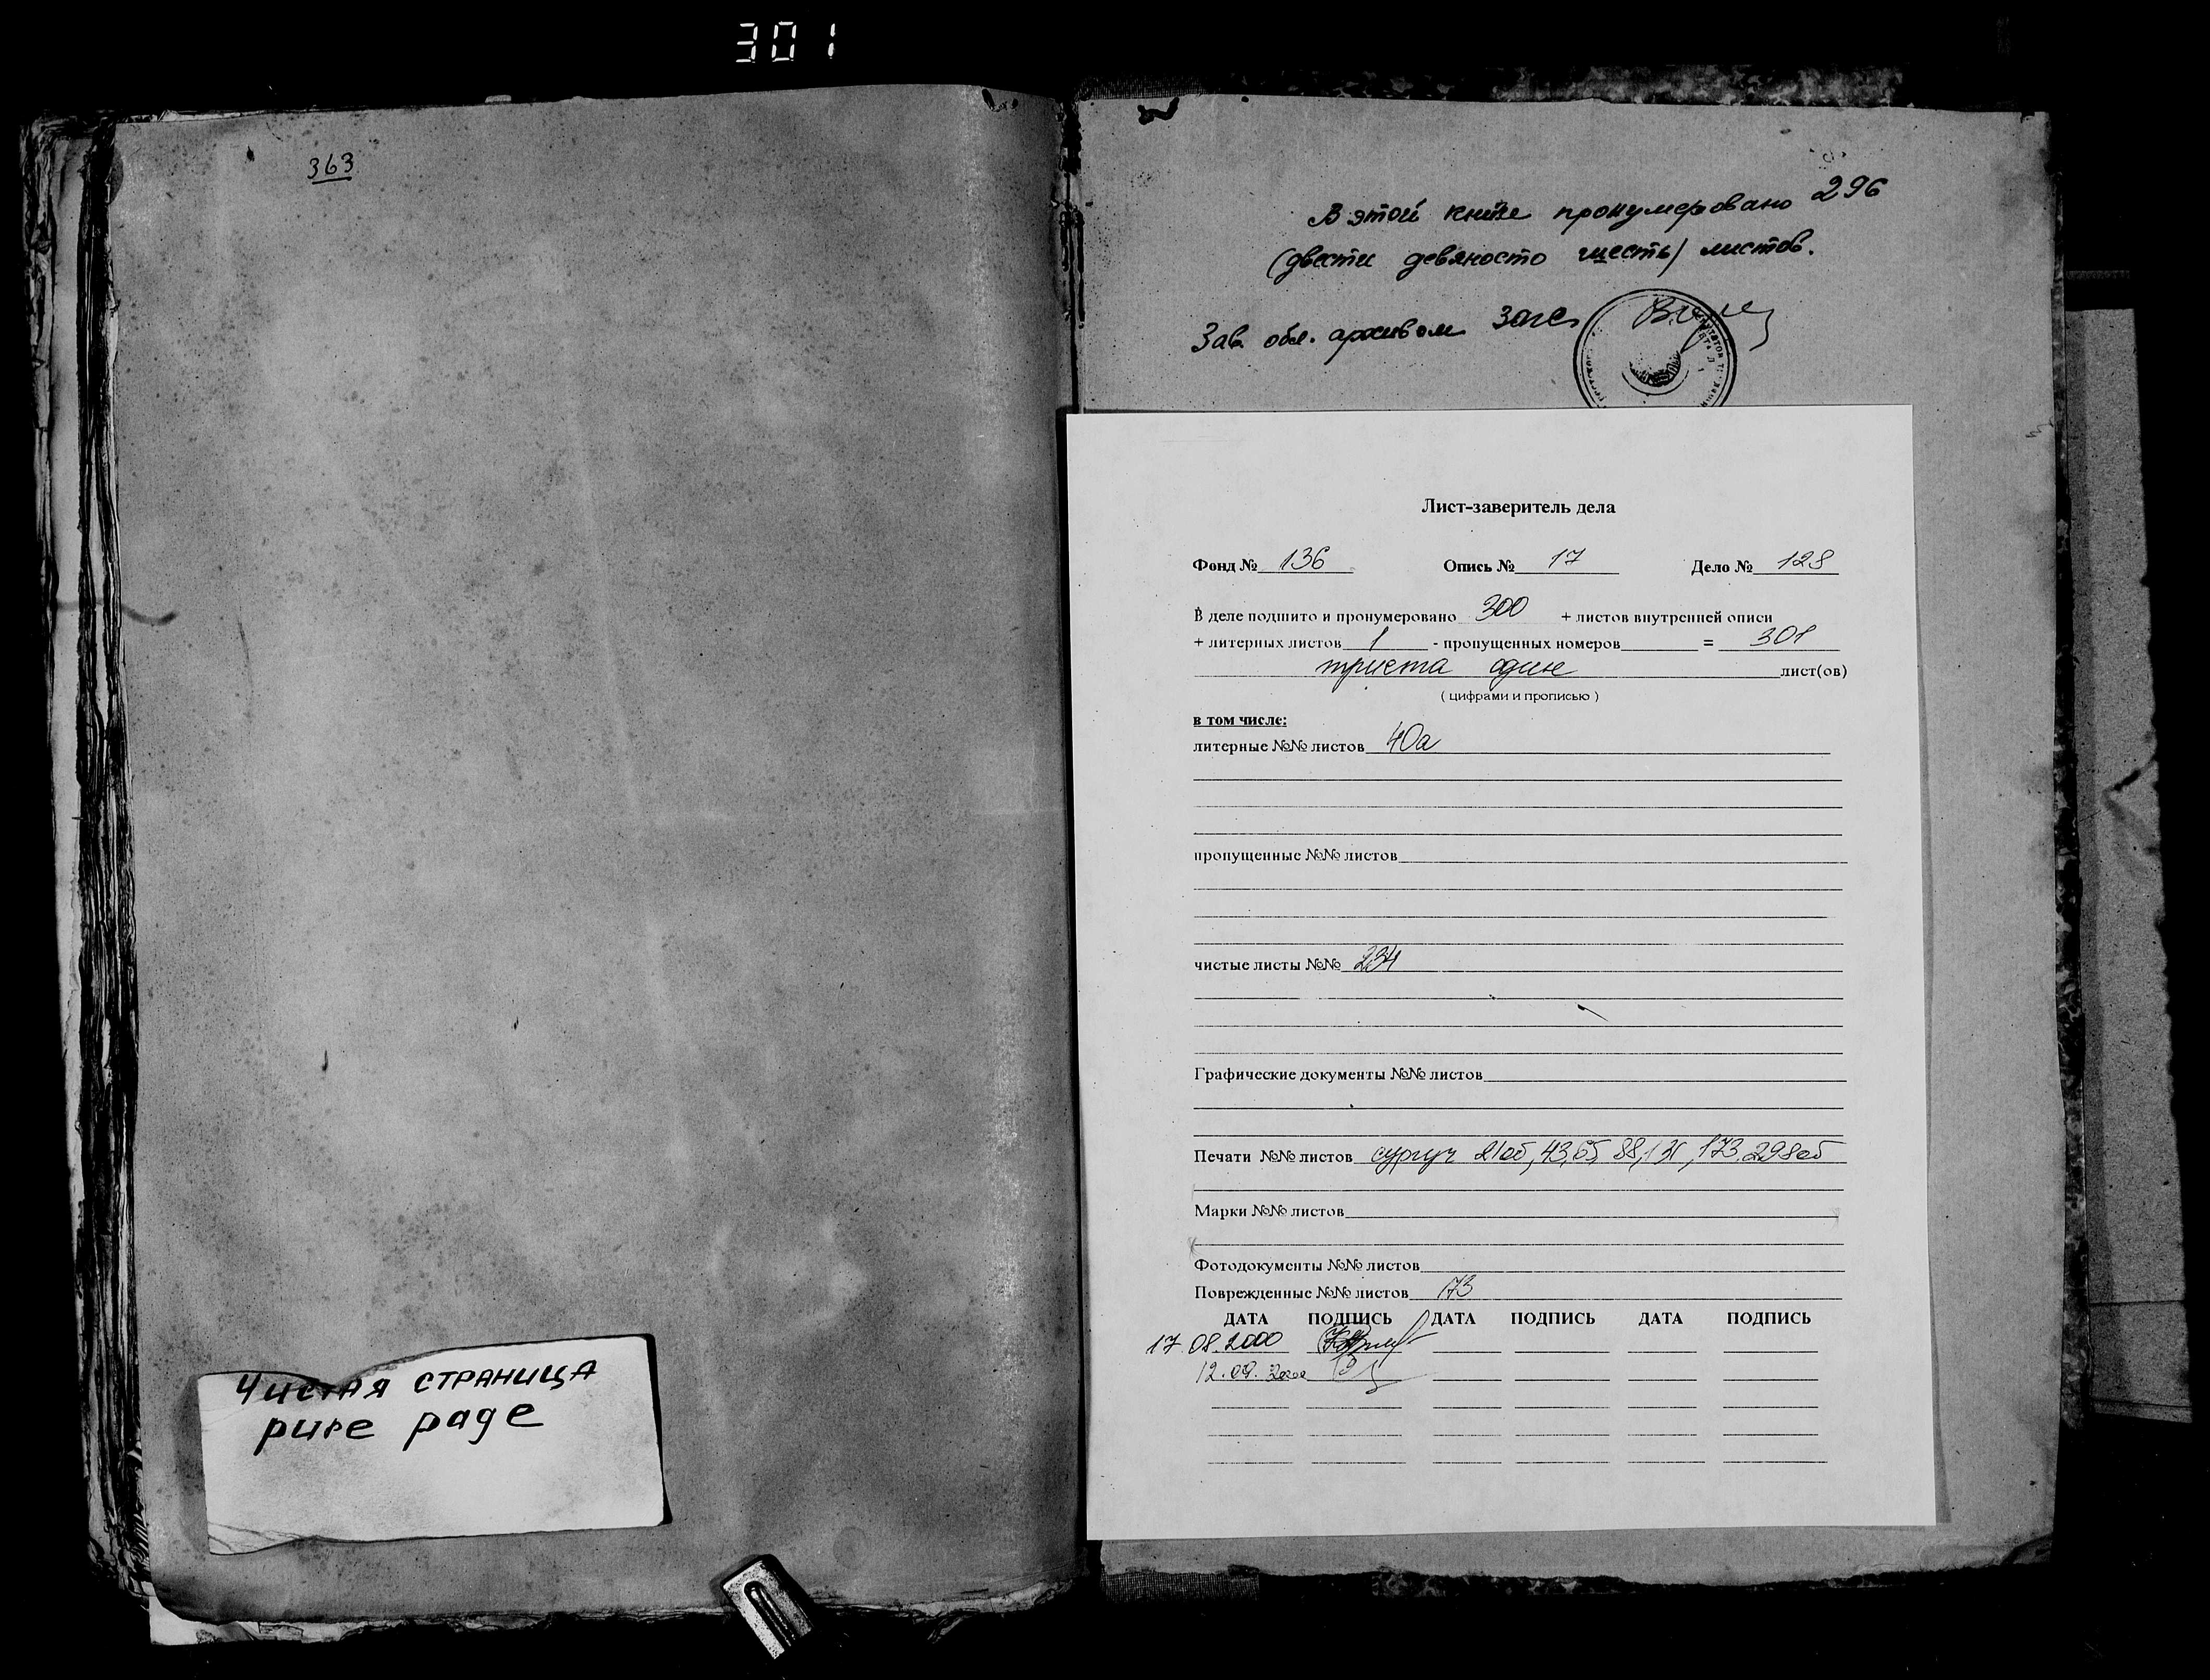 301
363
Чистая страница
pure page
В этой книге пронумеровано 296
(двести девяносто шесть) листов.
Зав. обл. архивом загс
Лист-заверитель дела
Фонд № 136 Опись № 17 Дело № 128
В деле подшито и пронумеровано 300 + листов внутренней описи
+ литерных листов 1 - пропущенных номеров = 301
триста один лист(ов)
( цифрами и прописью )
в том числе:
литерные №№ листов 40а
пропущенные №№ листов
чистые листы №№ 234
Графические документы №№ листов
Печати №№ листов сургуч 21об, 43, 65, 88, 131, 173, 298об
Марки №№ листов
Фотодокументы №№ листов
Поврежденные №№ листов 173
ДАТА ПОДПИСЬ ДАТА ПОДПИСЬ ДАТА ПОДПИСЬ
17.08.2000
12.09.2000